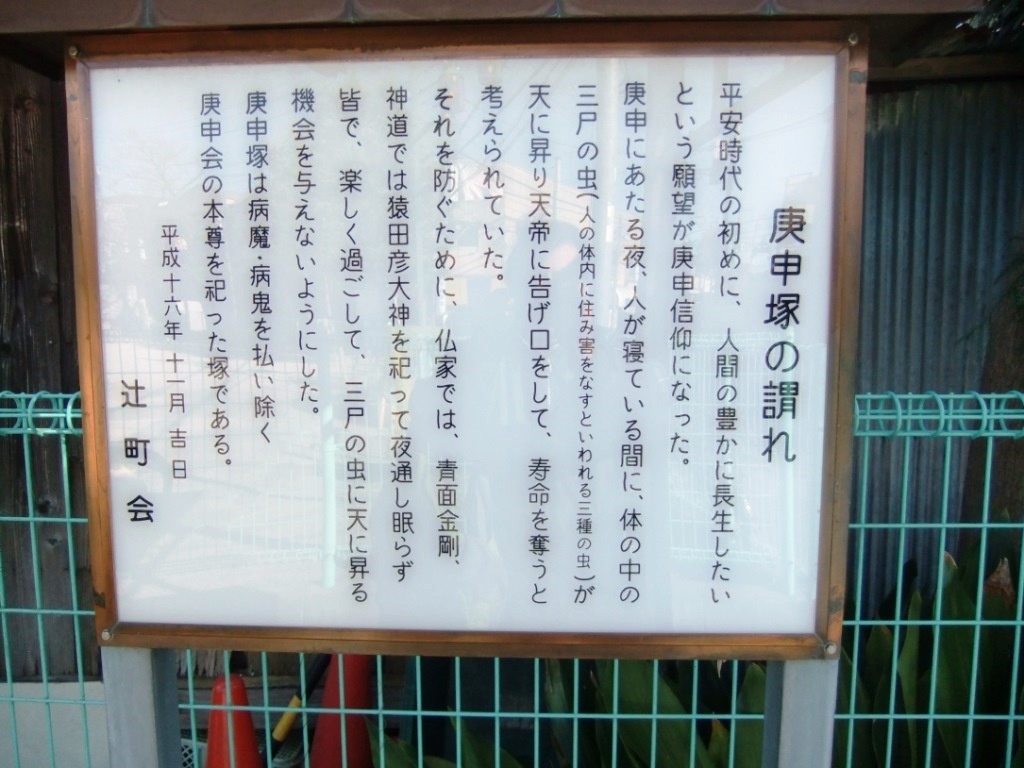 庚申塚の謂れ
平安時代の初めに、人間の豊かに長生したい
という願望が庚申信仰になった。
庚申にあたる夜、人が寝ている間に、体の中の
三戸の虫(人の体内に住み害をなすといわれる三種の虫)が
天に昇り天帝に告げ口をして、寿命を奪うと
考えられていた。
それを防ぐために、仏家では、青面金剛、
神道では猿田彦大神を祀って夜通し眠らず
皆で、楽しく過ごして、三戸の虫に天に昇る
機会を与えないようにした。
庚申塚は病魔・病鬼を払い除く
庚申会の本尊を祀った塚である。
平成十六年 十一月 吉日
辻町会